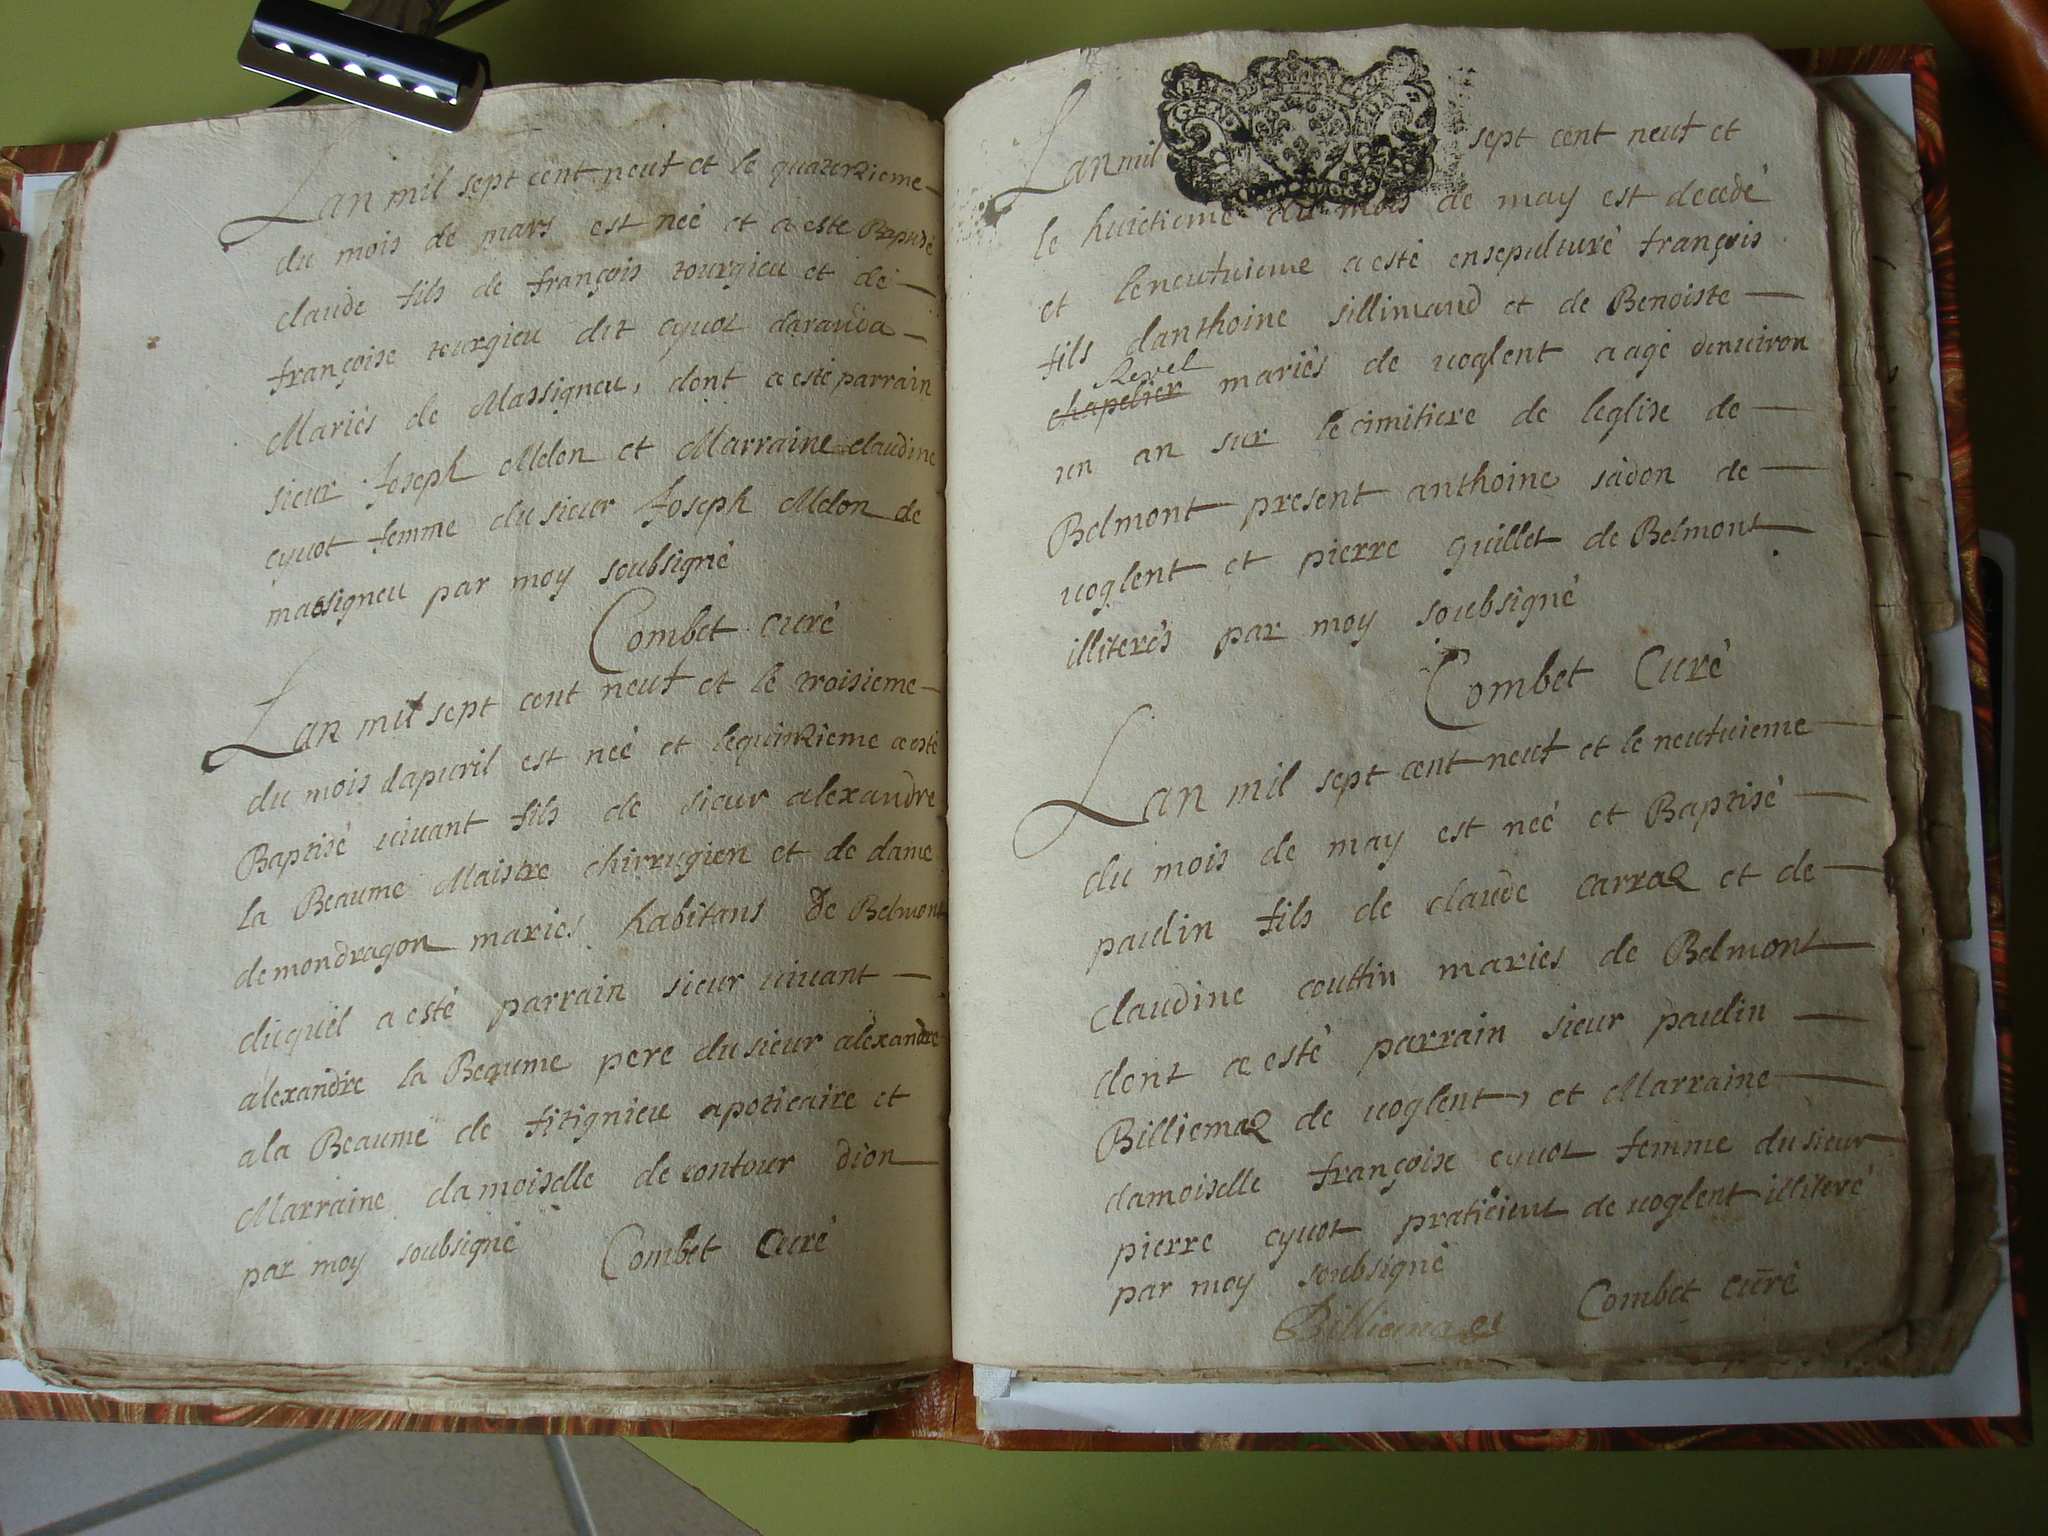 Lan mil sept cent neuf et le quatorzieme
du mois de mars est neé et a esté Baptisé
claude fils de françois tourgieu et de
françoise tourgieu dit cyuot daranda
Mariés de Massigneu, dont a esté parrain
sieur Joseph Melon et Marraine claudine
cyuot femme du sieur Joseph Melon de
massigneu par moy soubsigné
Combet curé
Lan mil sept cent neuf et le troisieme
du mois dapuril est neé et lequinzieme a esté
Baptisé uiuant fils de sieur alexandre
la Beaume Maistre chirrugien et de dame
de mondragon mariés habitans de Belmont
duquel a esté parrain sieur uiuant
alexandre la Beaume pere du sieur alexandre
a la Beaume de fitignieu apoticaire et
Marraine damoiselle de contour dion
par moy soubsigné Combet Curé
Lan mil sept cent neuf et
le huictieme du mois de may est decedé
et leneufuieme a esté ensepulturé françois
fils danthoine sillimand et de Benoiste
Revel
chapelier mariés de uoglent aagé denuiron
un an sur le cimitiere de leglise de
Belmont present anthoine sadon de
uoglent et pierre guillet de Belmont
illiterés par moy soubsigné
Combet Curé
Lan mil sept cent neuf et le neufuieme
du mois de may est neé et Baptisé
paulin fils de claude carraz et de
claudine couttin mariés de Belmont
dont a esté parrain sieur paulin
Billiemaz de uoglent, et Marraine
damoiselle françoise cyuot femme du sieur
pierre cyuot praticient de uoglent illiteré
par moy soubsigné
Billiemaz Combet curé